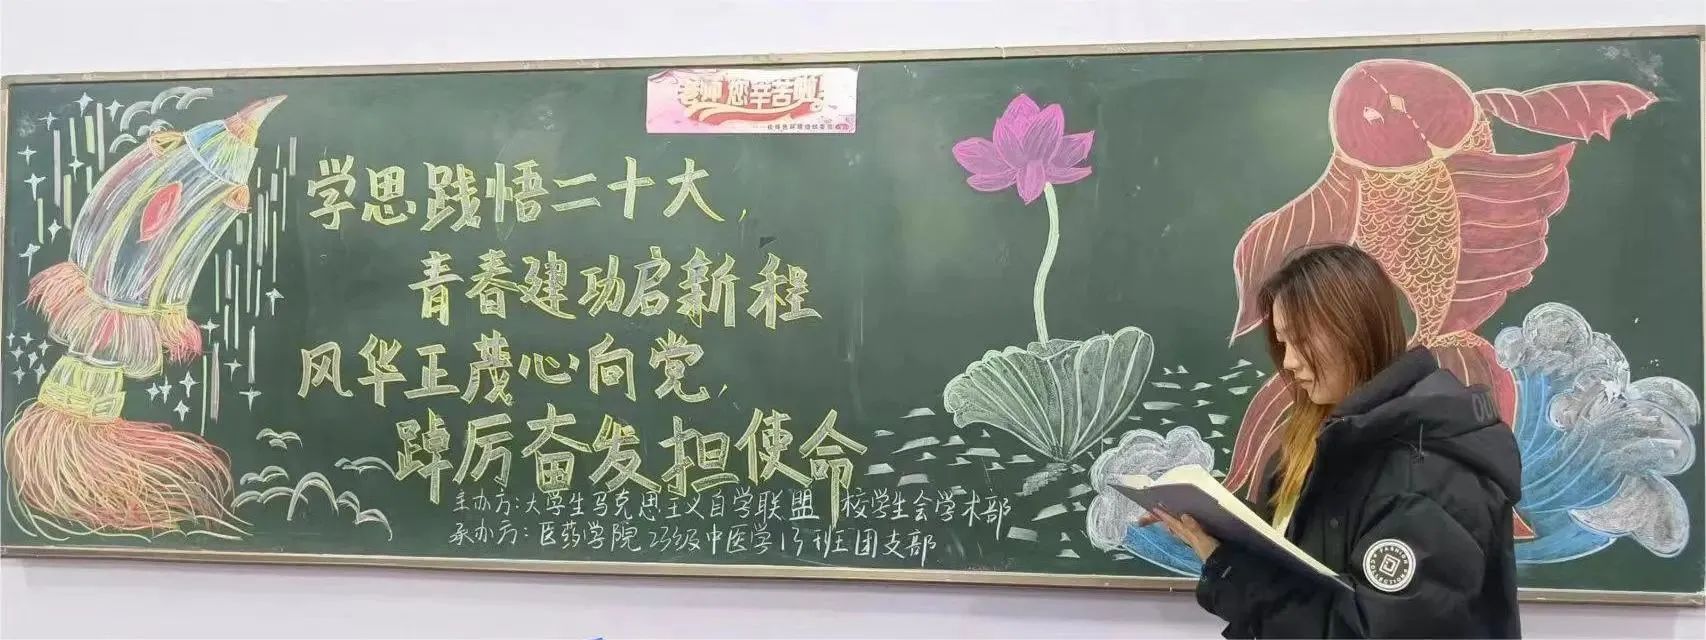 老师 您辛苦啦！
学思践悟二十大，
青春建功启新程
风华正茂心向党，
踔厉奋发担使命
主办方：大学生马克思主义自学联盟 校学生会学术部
承办方：医药学院23级中医学13班团支部
FASHION
COLLECTION